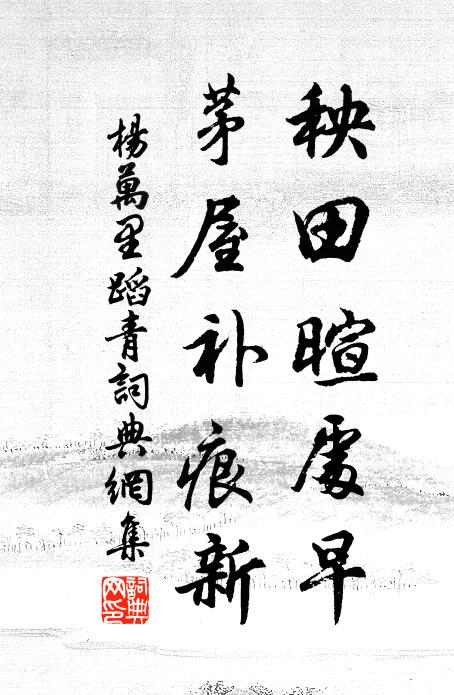 秧田暄處早
茅屋补痕新
楊萬里蹈青詞典網集
詞典网印